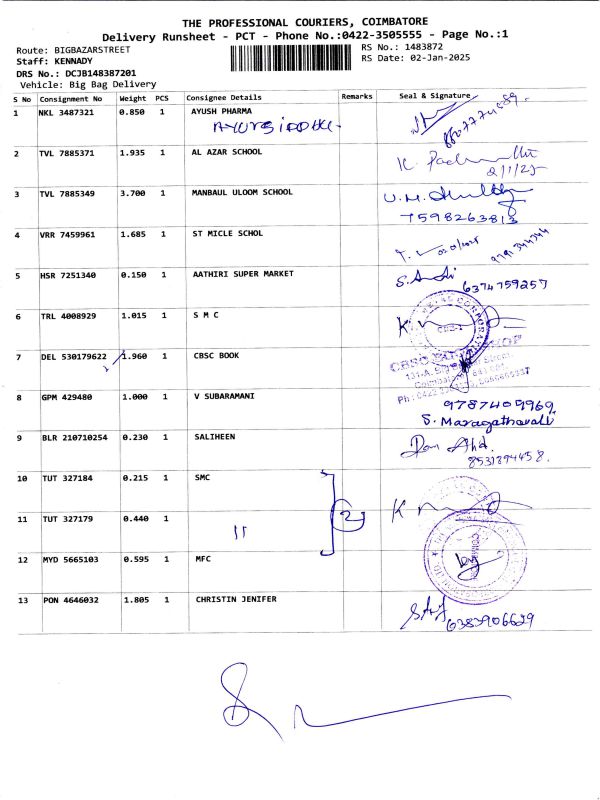 THE PROFESSIONAL COURIERS, COIMBATORE
Delivery Runsheet - PCT - Phone No.:0422-3505555 - Page No.:1
Route: BIGBAZARSTREET
RS No.: 1483872
Staff: KENNADY
RS Date: 02-Jan-2025
DRS No.: DCJB148387201
Vehicle: Big Bag Delivery
S No Consignment No Weight PCS Consignee Details Remarks Seal & Signature
1 NKL 3487321 0.850 1 AYUSH PHARMA
2 TVL 7885371 1.935 1 AL AZAR SCHOOL
2/1/25
3 TVL 7885349 3.700 1 MANBAUL ULOOM SCHOOL
7598263813
4 VRR 7459961 1.685 1 ST MICLE SCHOL
5 HSR 7251340 0.150 1 AATHIRI SUPER MARKET
6374759257
6 TRL 4008929 1.015 1 S M C
7 DEL 530179622 1.960 1 CBSC BOOK
8 GPM 429480 1.000 1 V SUBARAMANI
9787409969
S. Maragathavali
9 BLR 210710254 0.230 1 SALIHEEN
8531894458.
10 TUT 327184 0.215 1 SMC
2
11 TUT 327179 0.440 1 11
12 MYD 5665103 0.595 1 MFC
13 PON 4646032 1.805 1 CHRISTIN JENIFER
6383906629